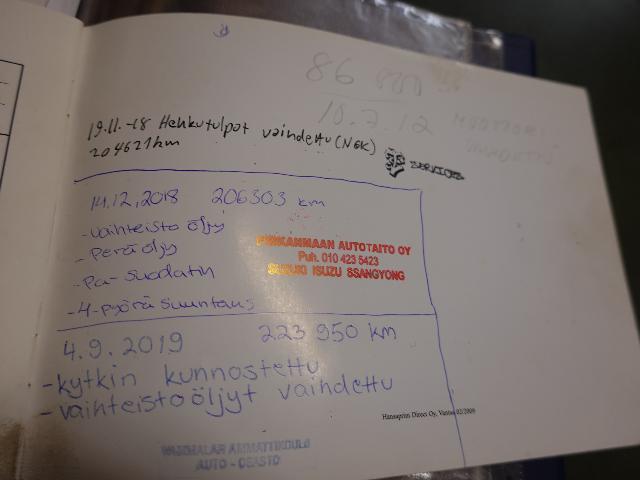 86 000
10.7.12 MOOTTORI
19.11.-18 Hehkutulpat vaihdettu (NGK)
204621km
SERVICES
14.12.2018 206303 km
-vaihteisto öljy
-perä öljy
-pa-suodatin
-4-pyöräsuuntaus
PIRKANMAAN AUTOTAITO OY
Puh. 010 423 5423
SUZUKI ISUZU SSANGYONG
4.9.2019 223 950 km
-kytkin kunnostettu
-vaihteistoöljyt vaihdettu
Hansaprint Direct Oy, Vantaa 02/2009
AMMATTIKOULU
AUTO-OSASTO